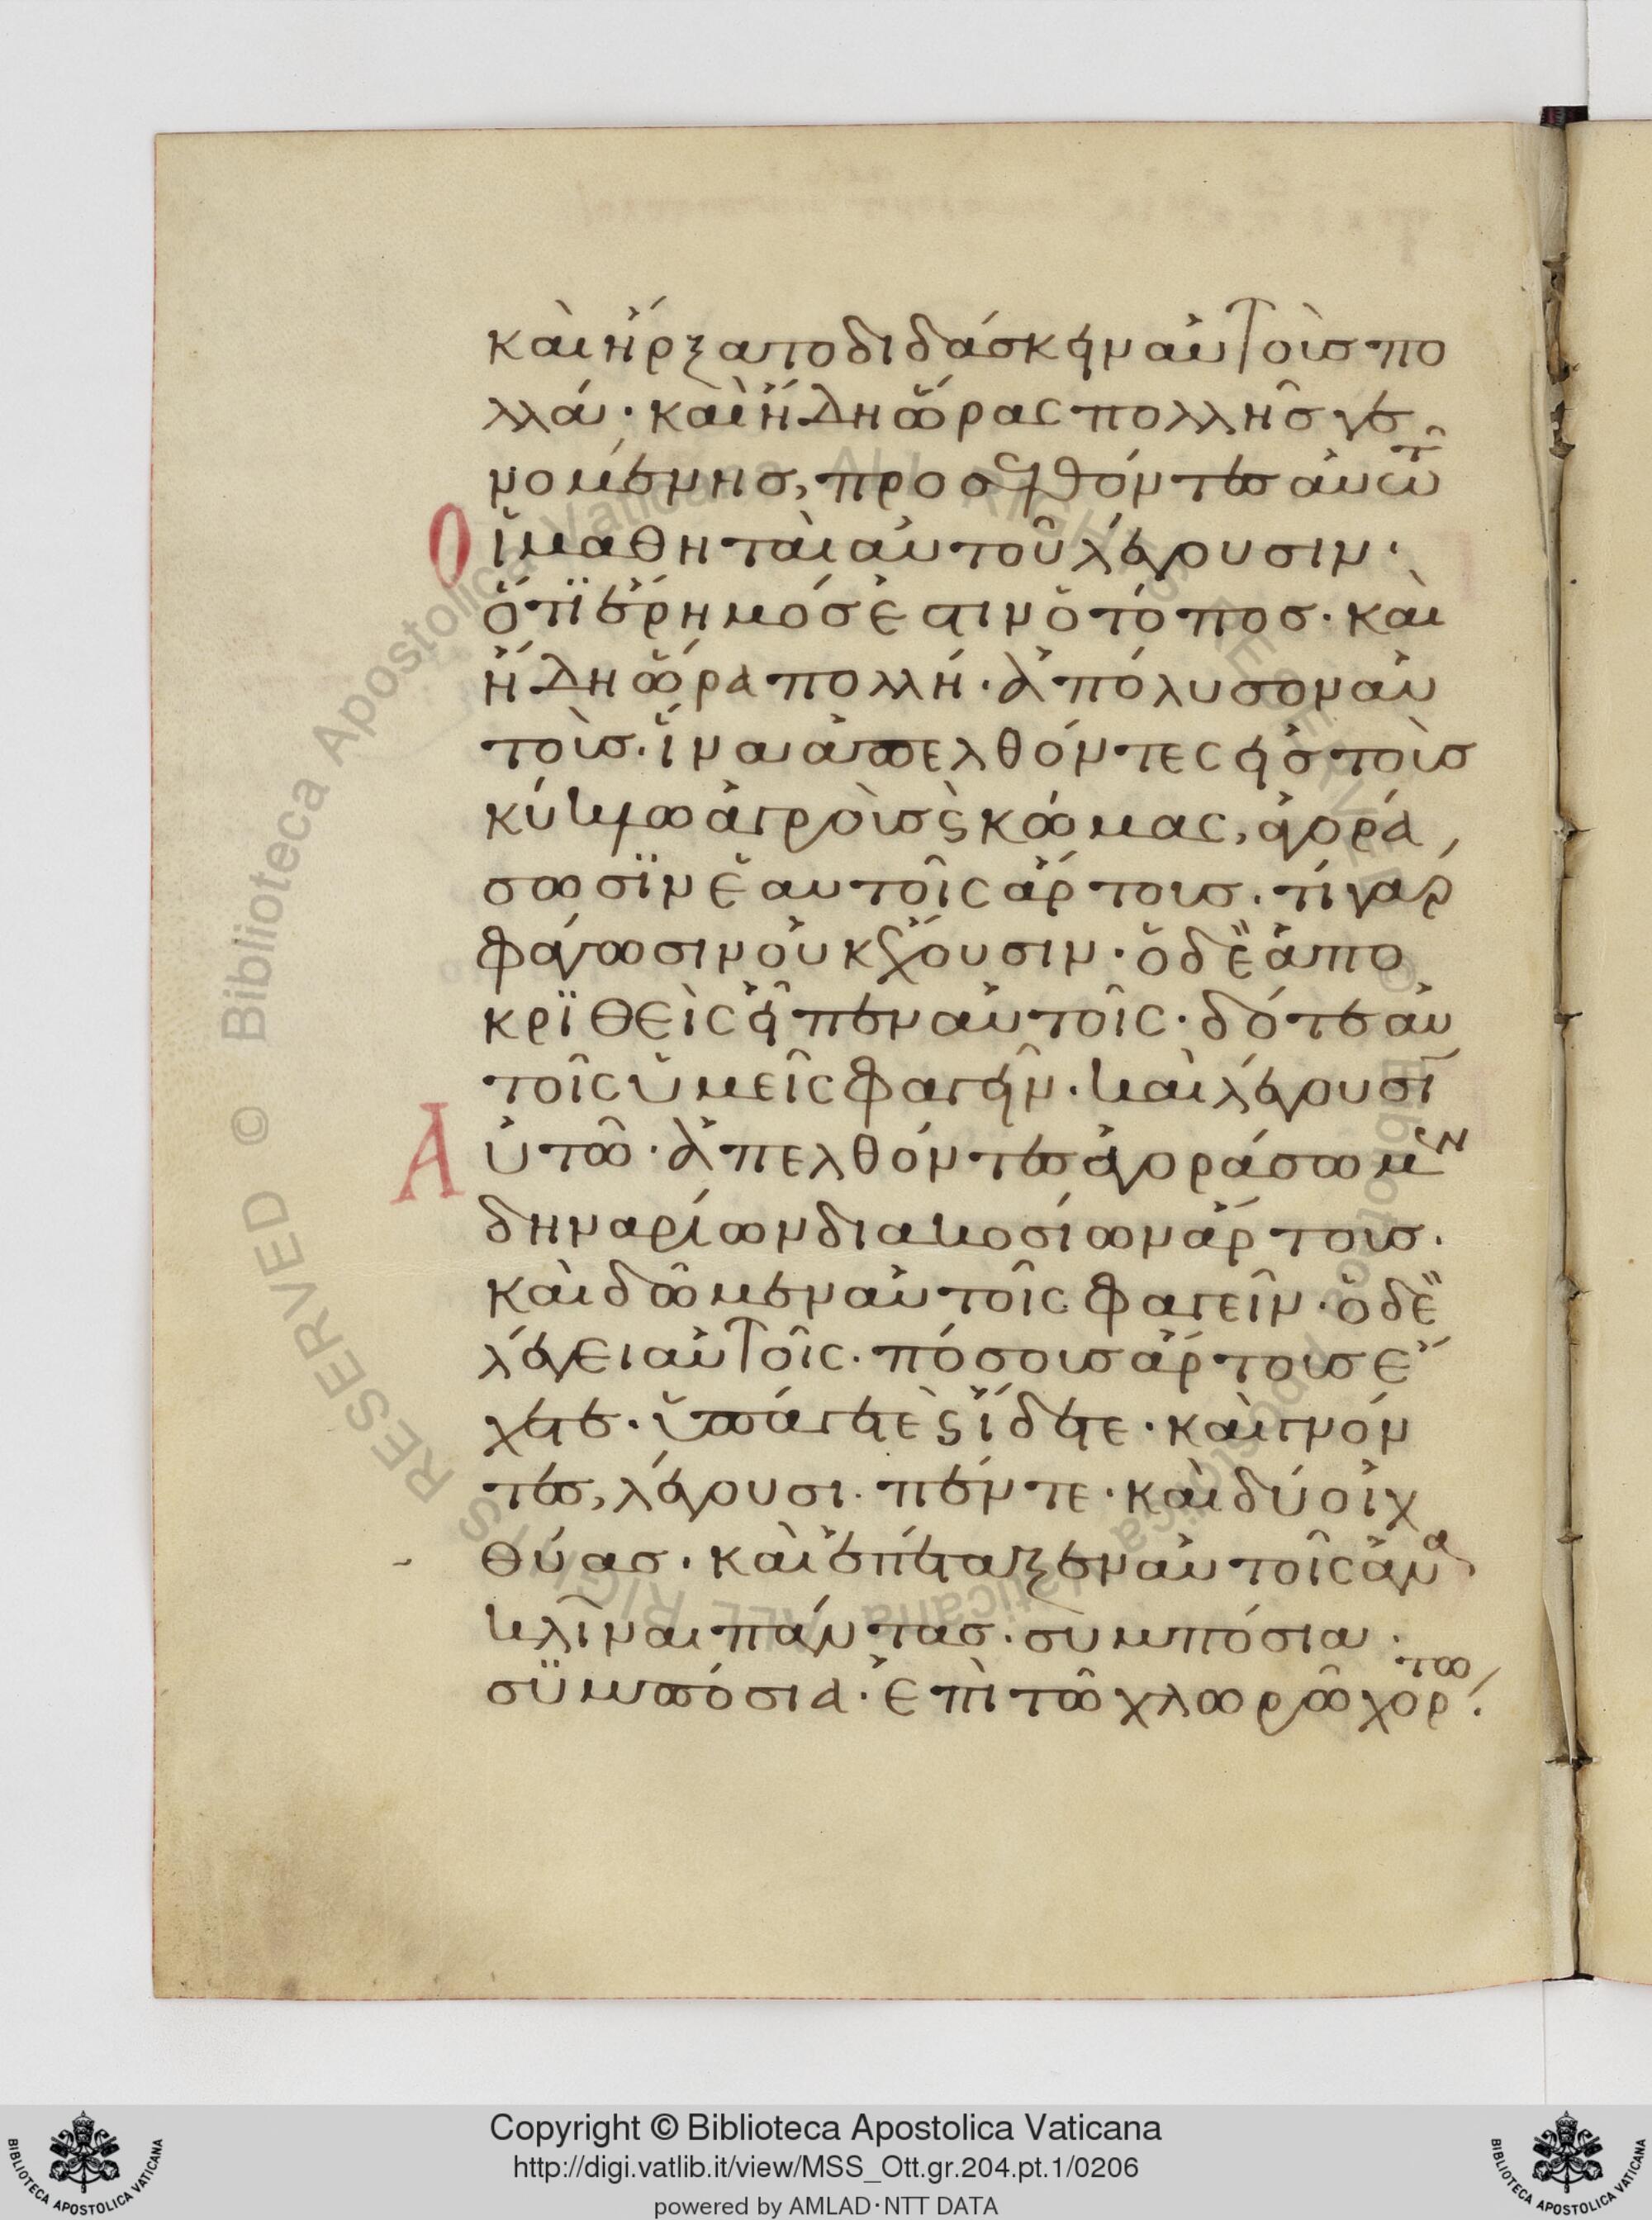 καὶ ἤρξατο διδάσκειν αὐτοὺς πο
λλά· καὶ ἤδη ὥρας πολλῆς γε
νομένης, προσελθόντες αὐτῶ
Οἱ μαθηταὶ αὐτοῦ λέγουσιν·
ὅτι ἔρημός ἐστιν ὁ τόπος· καὶ
ἤδη ὥρα πολλή· ἀπόλυσον αὐ
τούς· ἵνα ἀπελθόντες εἰς τοὺς
κύκλω ἀγροὺς ϛ κώμας, ἀγορά
σωσϊν ἑαυτοῖς ἄρτους· τί γαρ
φάγωσιν οὐκ ἔχουσιν· ὁ δὲ ἀπο
κρϊθεὶς εἶπεν αὐτοῖς· δότε αὐ
τοῖς ὑμεῖς φαγεῖν· καὶ λέγουσῑ
Αὐτῶ· ἀπελθόντες ἀγοράσωμεν
δηναρίων διακοσίων ἄρτους·
καὶ δῶμεν αὐτοῖς φαγεῖν· ὁ δὲ
λέγει αὐτοῖς· πόσους ἄρτους ἔ
χετε· ὑπάγετε ϛ ἴδετε· καὶ γνόν
τες, λέγουσι· πέντε· καὶ δύο ἰχ
θύας· καὶ ἐπέταξεν αὐτοῖς ἀνα
κλῖναι πάντας· συμπόσια·
σϋμπόσια· ἐπὶ τῶ χλωρῶ χόρτω·
Copyright © Biblioteca Apostolica Vaticana
http://digi.vatlib.it/view/MSS_Ott.gr.204.pt.1/0206
powered by AMLAD·NTT DATA
BIBLIOTECA APOSTOLICA VATICANA
BIBLIOTECA APOSTOLICA VATICANA
© Biblioteca Apostolica Vaticana ALL RIGHTS RESERVED